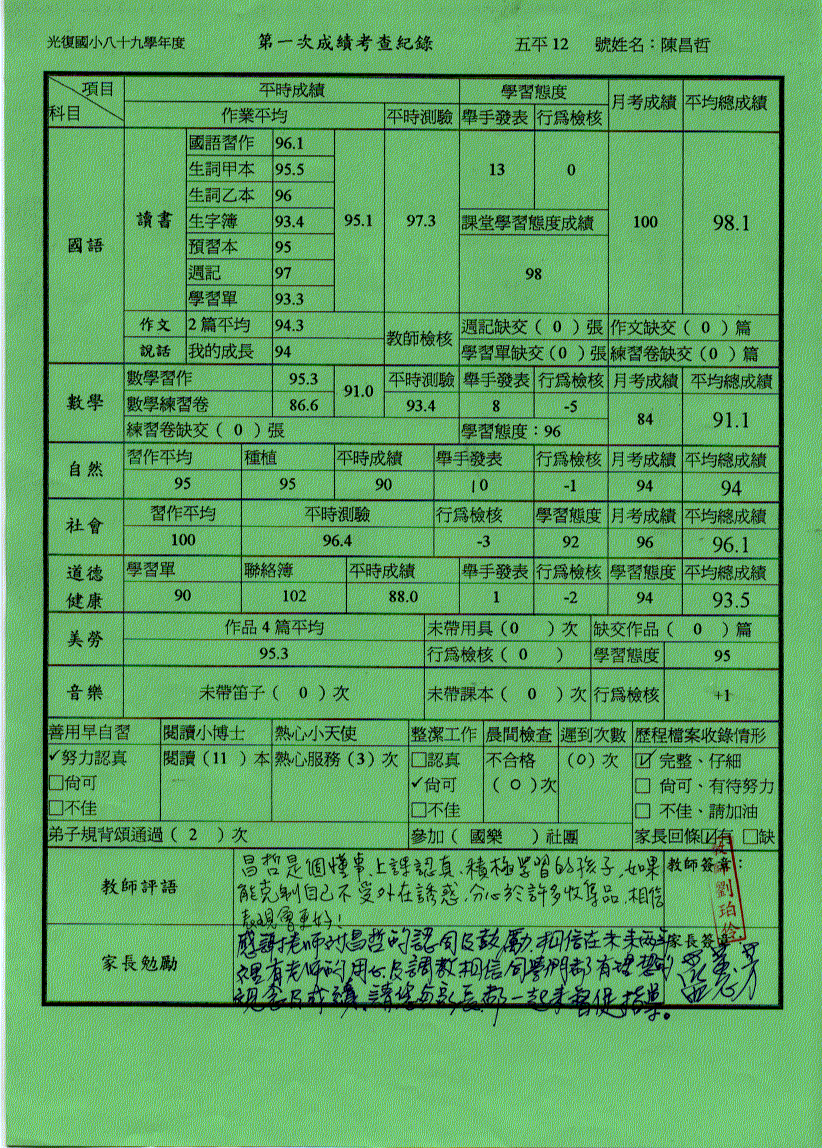 光復國小八十九學年度 第一次成績考查紀錄 五平 12 號姓名：陳昌哲
項目 平時成績 學習態度 月考成績 平均總成績
科目 作業平均 平時測驗 舉手發表 行爲檢核
國語 讀書 國語習作 96.1 95.1 97.3 13 0 100 98.1
生詞甲本 95.5
生詞乙本 96
生字簿 93.4 課堂學習態度成績
預習本 95
週記 97 98
學習單 93.3
作文 2篇平均 94.3 教師檢核 週記缺交（ 0 ）張 作文缺交（ 0 ）篇
說話 我的成長 94 學習單缺交（0 ）張 練習卷缺交（ 0 ）篇
數學 數學習作 95.3 91.0 平時測驗 舉手發表 行爲檢核 月考成績 平均總成績
數學練習卷 86.6 93.4 8 -5 84 91.1
練習卷缺交（ 0 ）張 學習態度：96
自然 習作平均 種植 平時成績 舉手發表 行爲檢核 月考成績 平均總成績
95 95 90 10 -1 94 94
社會 習作平均 平時測驗 行爲檢核 學習態度 月考成績 平均總成績
100 96.4 -3 92 96 96.1
道德 學習單 聯絡簿 平時成績 舉手發表 行爲檢核 學習態度 平均總成績
健康 90 102 88.0 1 -2 94 93.5
美勞 作品 4 篇平均 未帶用具（0 ）次 缺交作品（ 0 ）篇
95.3 行爲檢核（ 0 ） 學習態度 95
音樂 未帶笛子（ 0 ）次 未帶課本（ 0 ）次 行爲檢核 +1
善用早自習 閱讀小博士 熱心小天使 整潔工作 晨間檢查 遲到次數 歷程檔案收錄情形
✓努力認真 閱讀（11 ）本 熱心服務（3）次 □認真 不合格 （0）次 ☑ 完整、仔細
□尙可 ✓尙可 （ 0 ）次 □ 尙可、有待努力
□不佳 □不佳 □ 不佳、請加油
弟子規背頌通過（ 2 ）次 參加（ 國樂 ）社團 家長回條☑有 □缺
教師評語 昌哲是個懂事、上課認真、積極學習的孩子，如果 教師簽章：
能克制自己不受外在誘惑，分心於許多收集品，相信
表現會更好！
劉珀伶
家長勉勵 感謝老師對昌哲的認同及鼓勵，相信在未來兩年 家長簽章
裡有老師的用心及調教相信同學們都有理想的
觀念及成績，請您與家長都一起來督促指導。